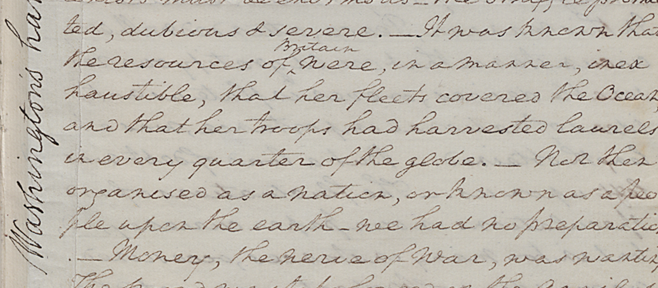 ted, dubious & severe. — It was known that
the resources of Britain were, in a manner, inex
haustible, that her fleets covered the Ocean
and that her troops had harvested laurels
in every quarter of the globe. — Not then
organised as a nation, or known as a peo
ple upon the earth — we had no preparatio
. — Money, the nerve of War, was wanting
Washington's han